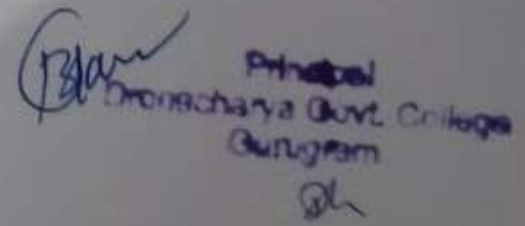 Principal
Dronacharya Govt. College
Gurugram